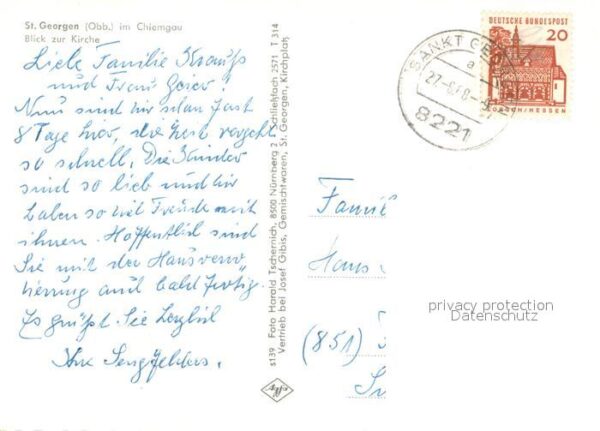 St. Georgen (Obb.) im Chiemgau
Blick zur Kirche
Liebe Familie Krauß
und Frau Geier!
Nun sind wir schon fast
8 Tage hier, die Zeit vergeht
so schnell. Die Kinder
sind so lieb und wir
haben so viel Freude mit
ihnen. Hoffentlich sind
Sie mit der
und bald fertig.
Es grüßt Sie herzlich
Ihre
s139 Foto Harald Tschernich, 8500 Nürnberg 2 Schließfach 2571 T 514
Vertrieb bei Josef Gibis, Gemischtwaren, St. Georgen, Kirchplatz
SANKT GE
a
27.-6.68.-
8221
DEUTSCHE BUNDESPOST
20
LORSCH/HESSEN
Famil
Hans
(851)
privacy protection
Datenschutz